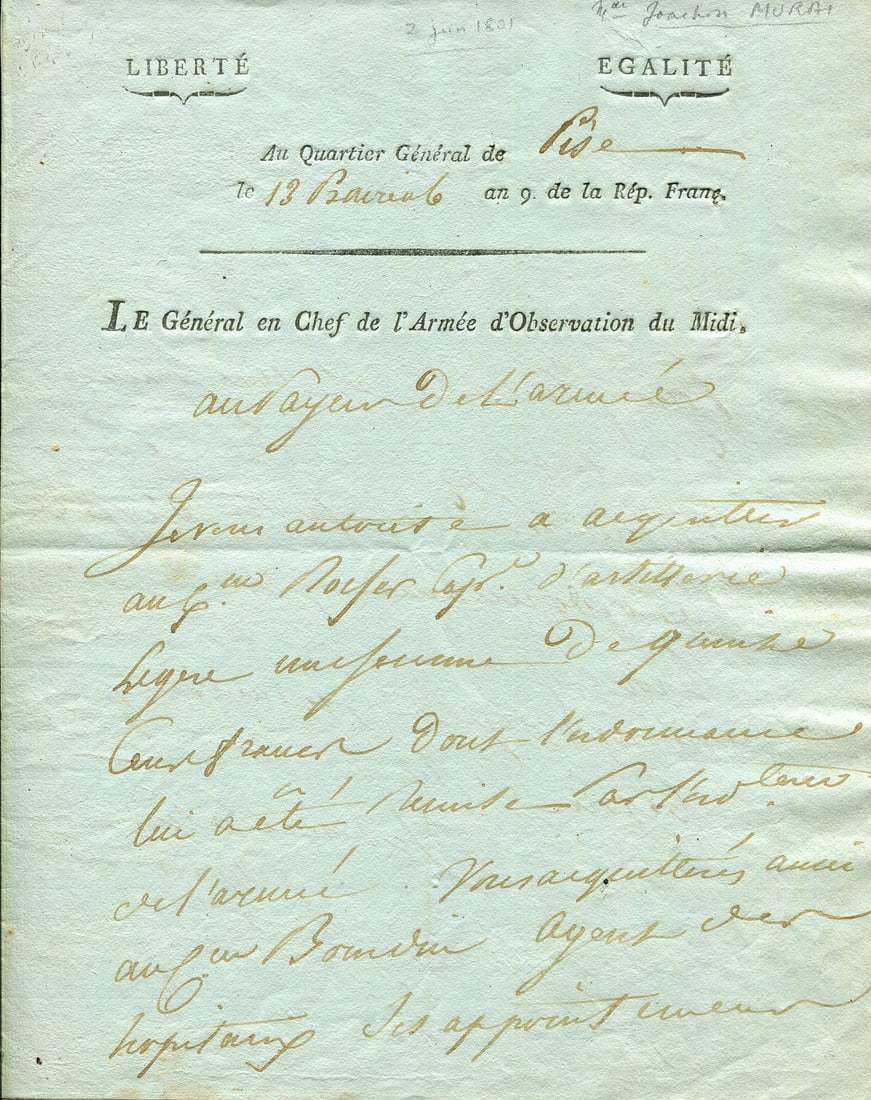 2 juin 1801
Mal Joachim MURAT
LIBERTÉ EGALITÉ
Au Quartier Général de Pise
le 13 Prairial an 9. de la Rép. Franç.
LE Général en Chef de l'Armée d'Observation du Midi,
au Payeur De L'armée
Je vous autorise a acquitter
au Cen Capne. d'artillerie
Legere une somme De quinze
Cent francs dont l'ordonnance
lui a été Remise Par l'
de l'armée. Vous acquitterés aussi
au Cen Bourdin Agent des
hopitaux Ses appointemens